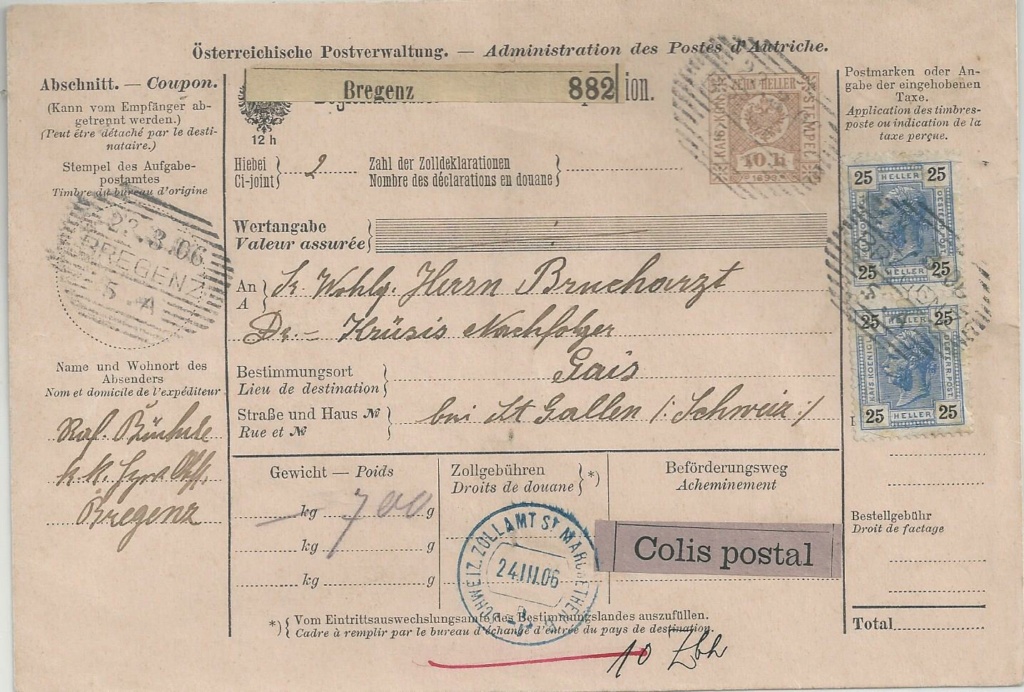 Österreichische Postverwaltung. — Administration des Postes d'Autriche.
Abschnitt. — Coupon.
(Kann vom Empfänger ab-
getrennt werden.)
(Peut être détaché par le desti-
nataire.)
Stempel des Aufgabe-
postamtes
Timbre du bureau d'origine
23.3.06
BREGENZ
5 A
Name und Wohnort des
Absenders
Nom et domicile de l'expéditeur
Bregenz
Bregenz 882
ion.
12 h
ZEHN HELLER
KAIS. KÖN.
STEMPEL
10 h
1898
Hiebei
Ci-joint
2
Zahl der Zolldeklarationen
Nombre des déclarations en douane
Wertangabe
Valeur assurée
An
A
Sr Wohlg. Herrn Brucharzt
Dr. Krüsis Nachfolger
Bestimmungsort
Lieu de destination
Gais
Straße und Haus №
Rue et №
bei St Gallen /: Schweiz :/
Gewicht — Poids
— kg 700 g
kg g
kg g
Zollgebühren
Droits de douane
*)
Beförderungsweg
Acheminement
SCHWEIZ. ZOLLAMT ST MARGRETHEN
24 III 06
Colis postal
*) Vom Eintrittsauswechslungsamte des Bestimmungslandes auszufüllen.
Cadre à remplir par le bureau d'échange d'entrée du pays de destination.
10
Postmarken oder An-
gabe der eingehobenen
Taxe.
Application des timbres-
poste ou indication de la
taxe perçue.
25 HELLER 25
25 25
25 HELLER 25
KAIS. KOENIG. OESTERR. POST
25 HELLER 25
Bestellgebühr
Droit de factage
Total